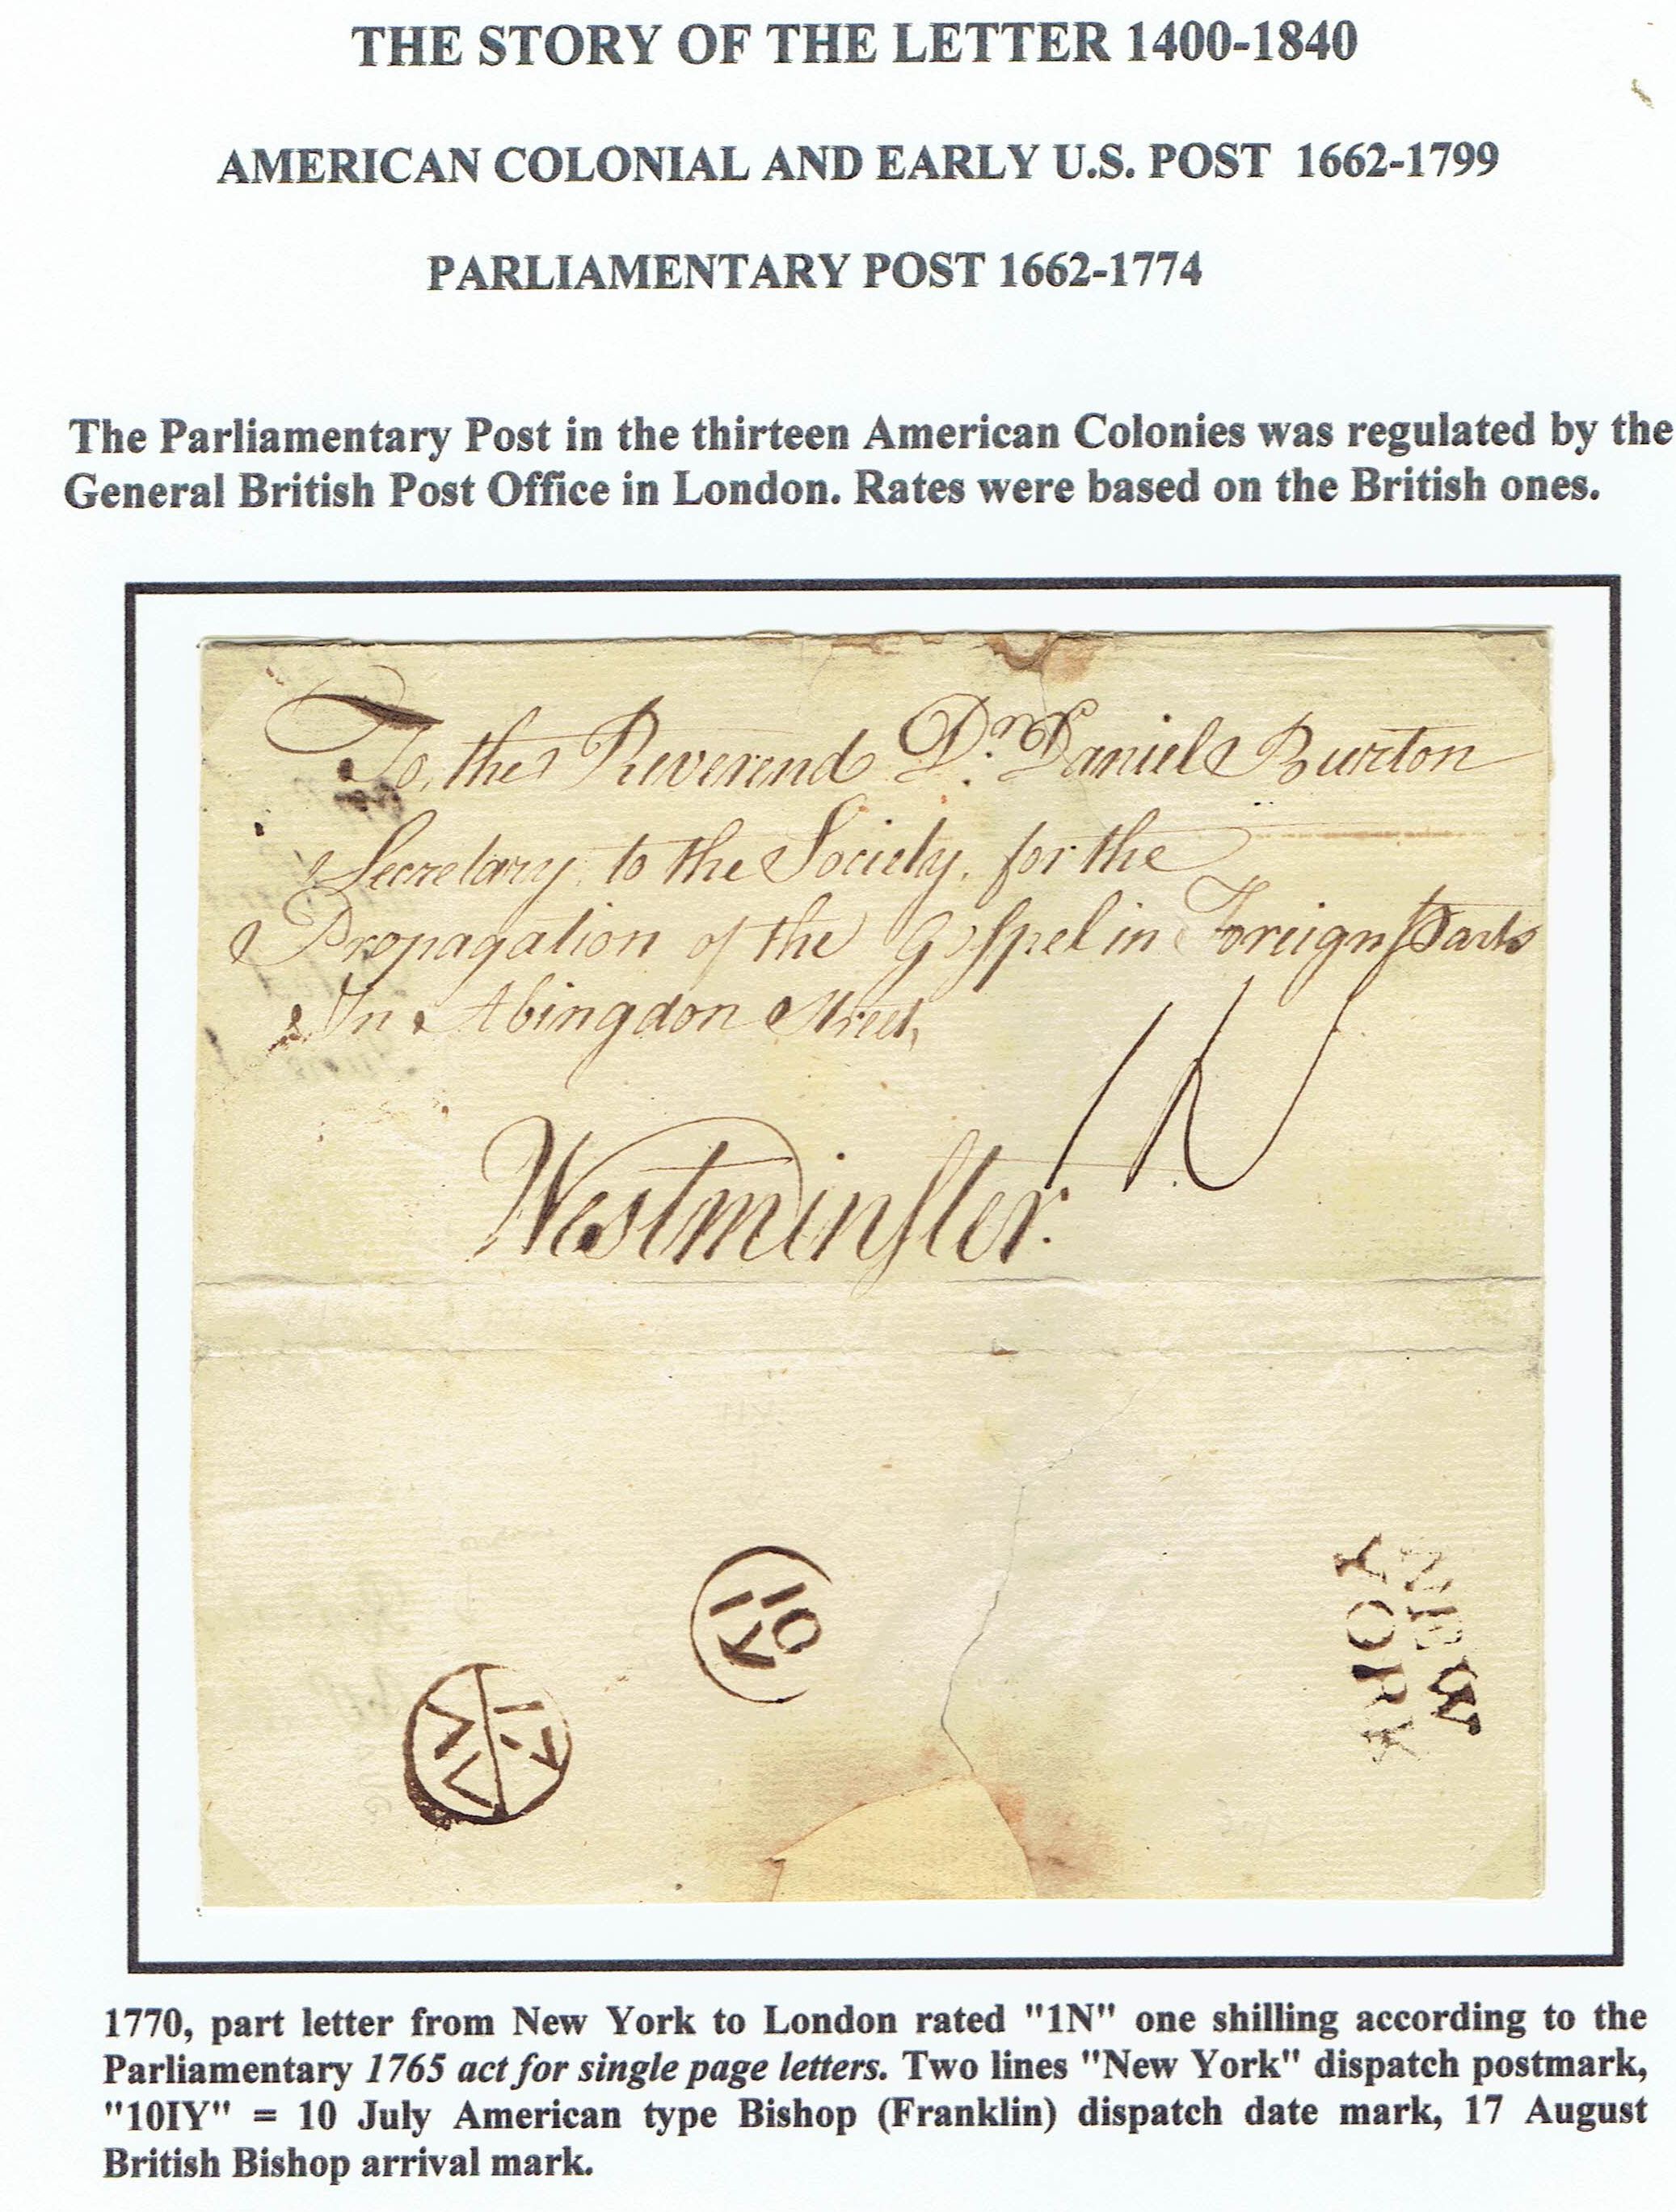 THE STORY OF THE LETTER 1400-1840
AMERICAN COLONIAL AND EARLY U.S. POST 1662-1799
PARLIAMENTARY POST 1662-1774
The Parliamentary Post in the thirteen American Colonies was regulated by the
General British Post Office in London. Rates were based on the British ones.
To, the Reverend Dr. Daniel Burton
Secretary to the Society, for the
Propagation of the Gospel in Foreign Parts
In Abingdon Street,
1N
Westminster.
10
IY
NEW
YORK
17
AV
1770, part letter from New York to London rated "1N" one shilling according to the
Parliamentary 1765 act for single page letters. Two lines "New York" dispatch postmark,
"10IY" = 10 July American type Bishop (Franklin) dispatch date mark, 17 August
British Bishop arrival mark.